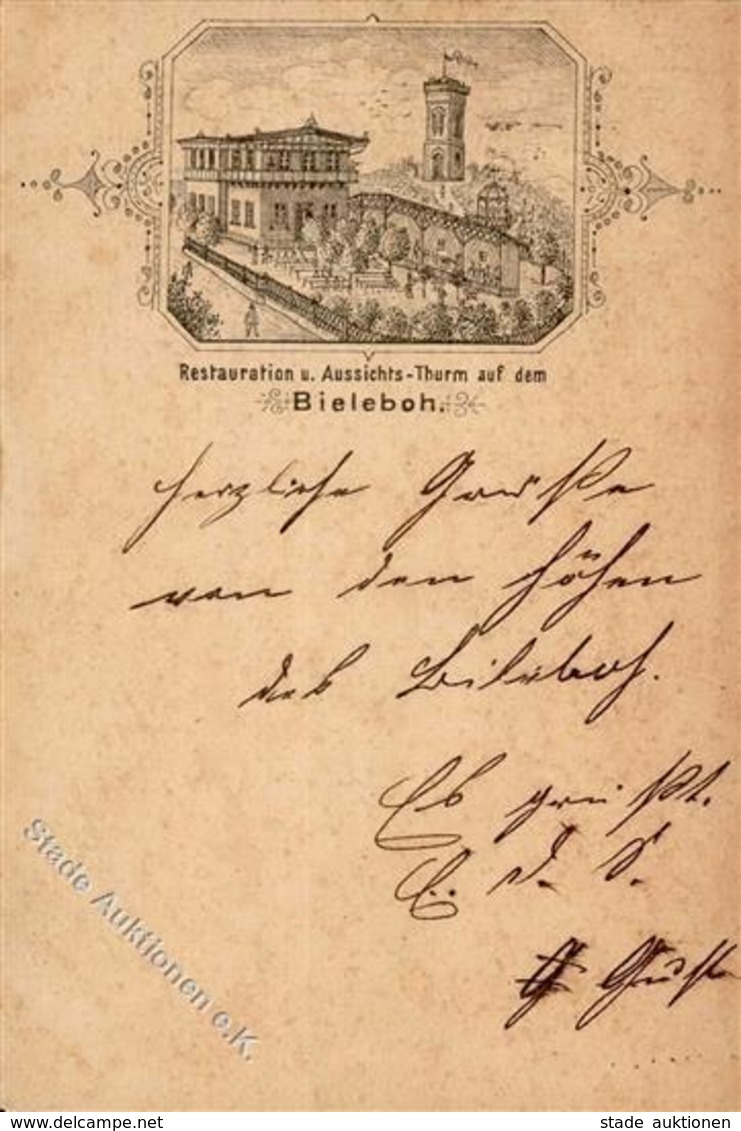 Restauration u. Aussichts-Thurm auf dem
Bieleboh.
Herzliche Grüße
von den Höhen
des Bieleboh.
Es grüßt.
E. d. S.
Stade Auktionen e.K.
www.delcampe.net
stade_auktionen